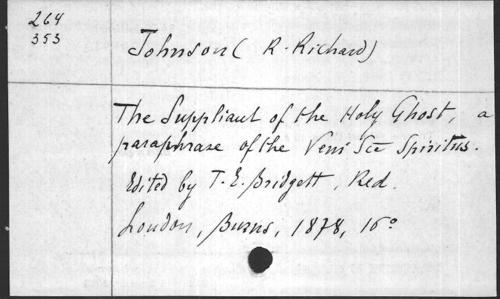 264
353
Johnson ( R. Richard)
The Suppliant of the Holy Ghost, a
paraphrase of the Veni Sce Spiritus.
Edited by T. E. Bridgett, Red.
London, Burns, 1878, 16º